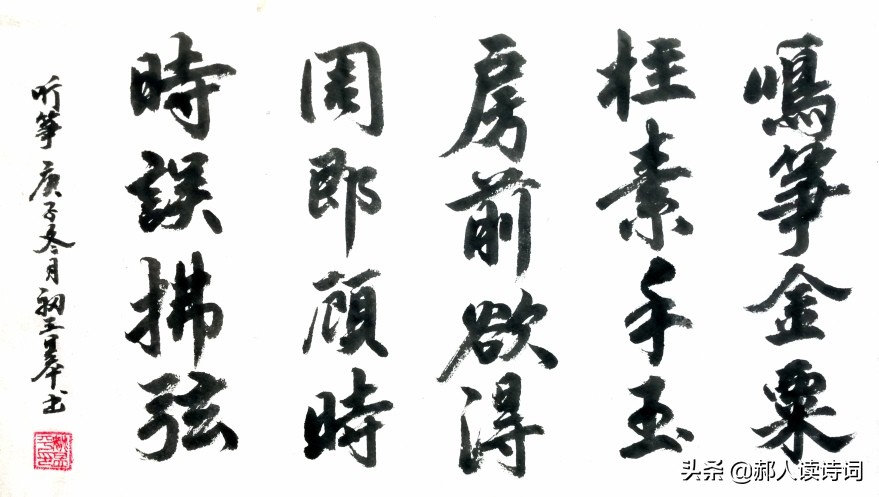 鳴筝金粟
柱素手玉
房前欲得
周郎顧時
時誤拂弦
听筝 庚子冬月初三 书
头条 @郝人读诗词